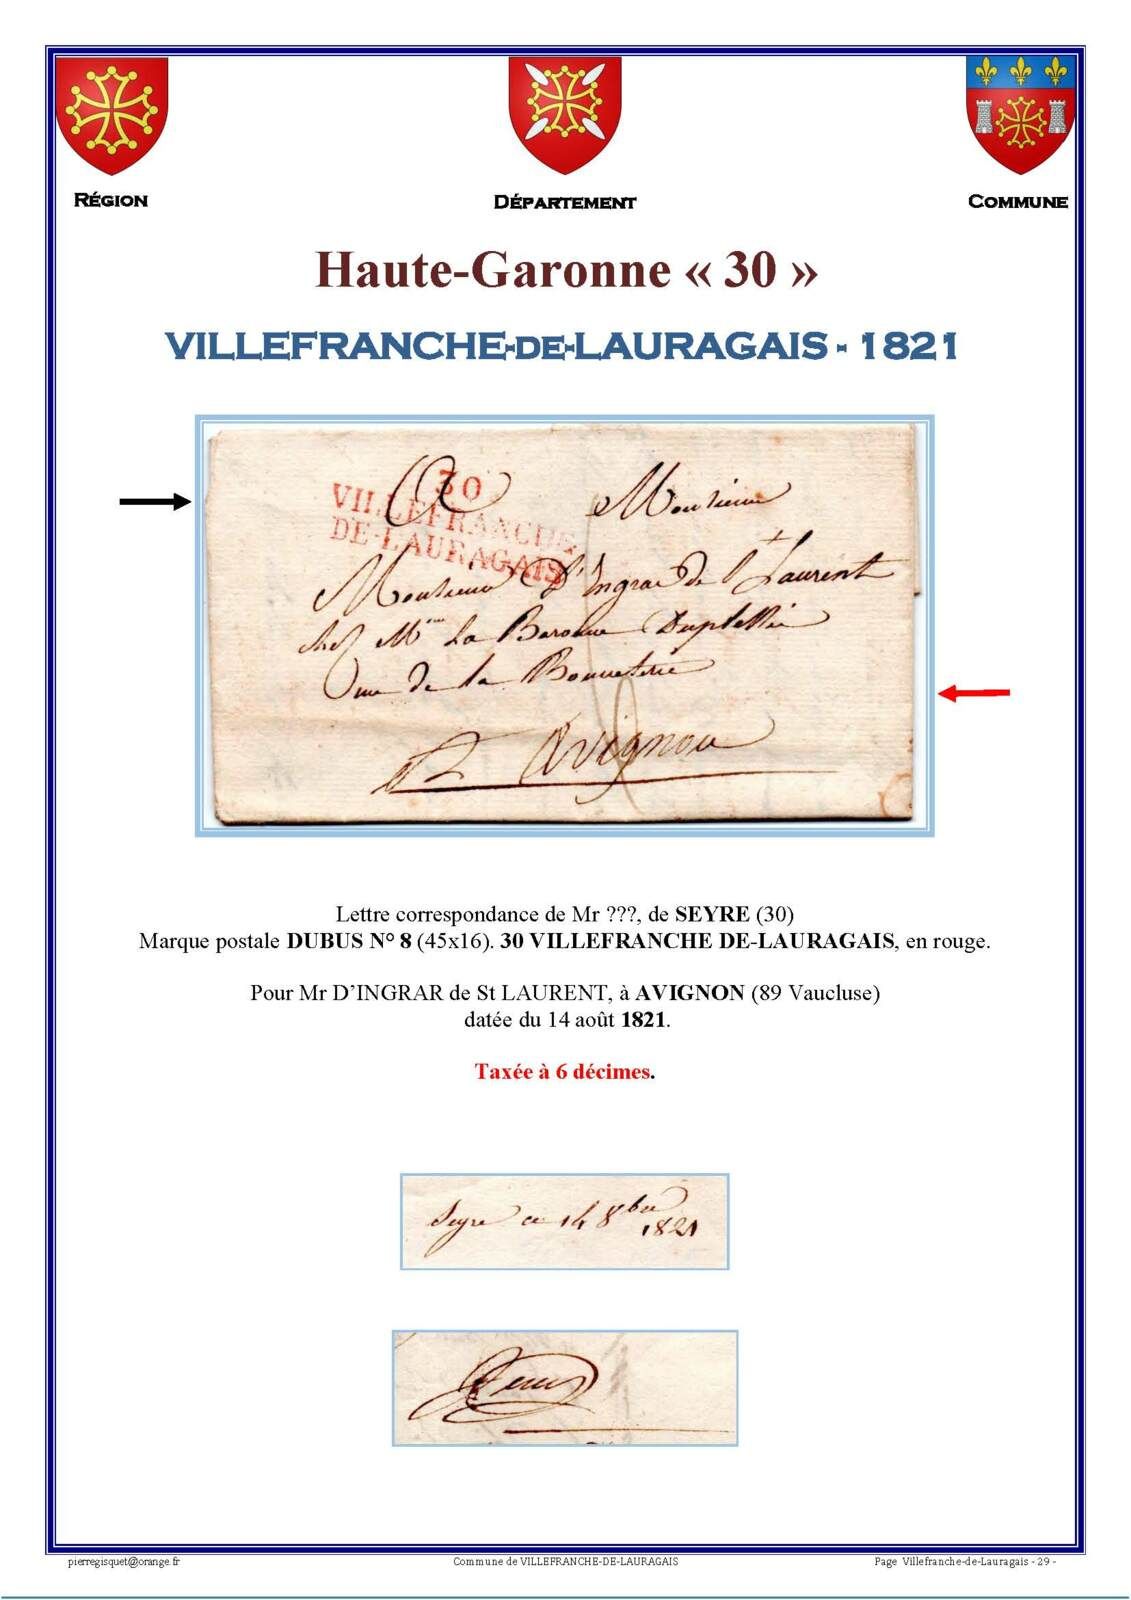 RÉGION
DÉPARTEMENT
COMMUNE
Haute-Garonne « 30 »
VILLEFRANCHE-DE-LAURAGAIS - 1821
30
VILLEFRANCHE
DE-LAURAGAIS
Monsieur
Monsieur D'Ingrar de St Laurent
chez Mme La Baronne Duplessis
rue de la Bonneterie
a Avignon
Lettre correspondance de Mr ???, de SEYRE (30)
Marque postale DUBUS N° 8 (45x16). 30 VILLEFRANCHE DE-LAURAGAIS, en rouge.
Pour Mr D'INGRAR de St LAURENT, à AVIGNON (89 Vaucluse)
datée du 14 août 1821.
Taxée à 6 décimes.
Seyre ce 14 8bre
1821
pierregisquet@orange.fr
Commune de VILLEFRANCHE-DE-LAURAGAIS
Page Villefranche-de-Lauragais - 29 -